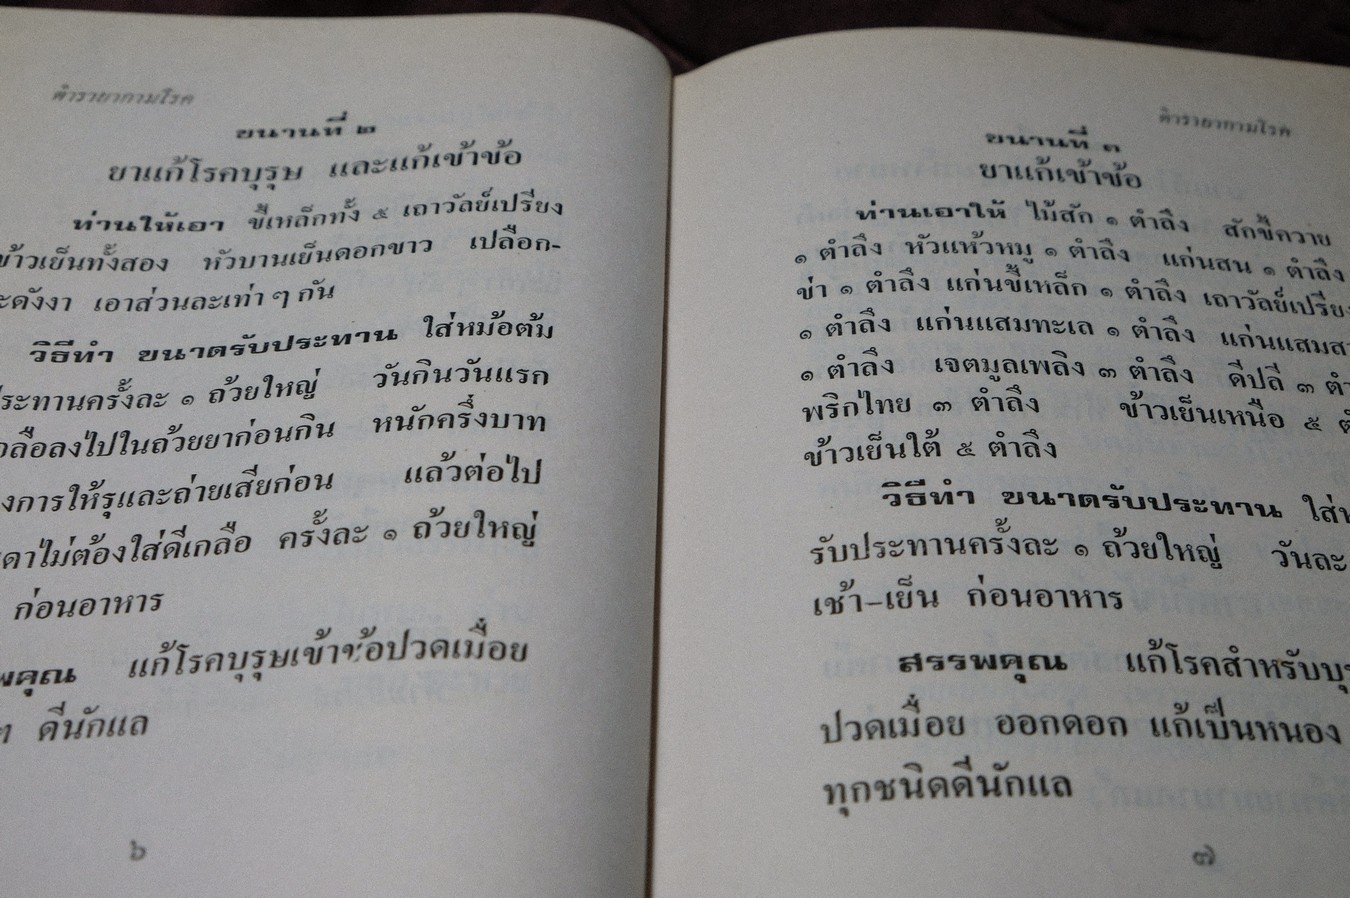 ตำรายากามโรค
ขนานที่ ๒
ยาแก้โรคบุรุษ และแก้เข้าข้อ
ท่านให้เอา ขี้เหล็กทั้ง ๕ เถาวัลย์เปรียง
ข้าวเย็นทั้งสอง หัวบานเย็นดอกขาว เปลือก-
ะดังงา เอาส่วนละเท่า ๆ กัน
วิธีทำ ขนาดรับประทาน ใส่หม้อต้ม
ระทานครั้งละ ๑ ถ้วยใหญ่ วันกินวันแรก
กลือลงไปในถ้วยยาก่อนกิน หนักครึ่งบาท
งการให้รุและถ่ายเสียก่อน แล้วต่อไป
ดาไม่ต้องใส่ดีเกลือ ครั้งละ ๑ ถ้วยใหญ่
ก่อนอาหาร
พคุณ แก้โรคบุรุษเข้าข้อปวดเมื่อย
ๆ ดีนักแล
๖
ตำรายากามโรค
ขนานที่ ๓
ยาแก้เข้าข้อ
ท่านเอาให้ ไม้สัก ๑ ตำลึง สักขี้ควาย
๑ ตำลึง หัวแห้วหมู ๑ ตำลึง แก่นสน ๑ ตำลึง
ข่า ๑ ตำลึง แก่นขี้เหล็ก ๑ ตำลึง เถาวัลย์เปรียง
๑ ตำลึง แก่นแสมทะเล ๑ ตำลึง แก่นแสมสา
๑ ตำลึง เจตมูลเพลิง ๓ ตำลึง ดีปลี ๓ ตำ
พริกไทย ๓ ตำลึง ข้าวเย็นเหนือ ๕ ต
ข้าวเย็นใต้ ๕ ตำลึง
วิธีทำ ขนาดรับประทาน ใส่ห
รับประทานครั้งละ ๑ ถ้วยใหญ่ วันละ
เช้า-เย็น ก่อนอาหาร
สรรพคุณ แก้โรคสำหรับบุร
ปวดเมื่อย ออกดอก แก้เป็นหนอง
ทุกชนิดดีนักแล
๗